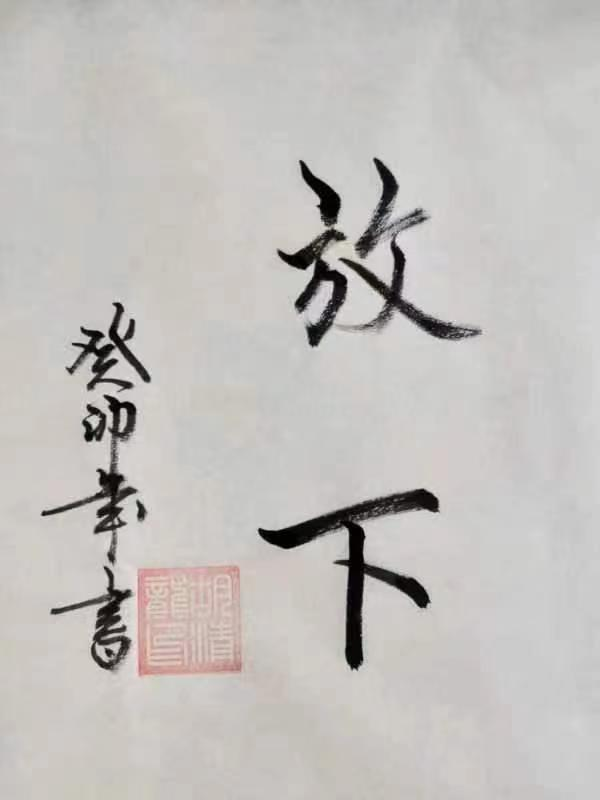 放下
癸卯年書
胡清龍印